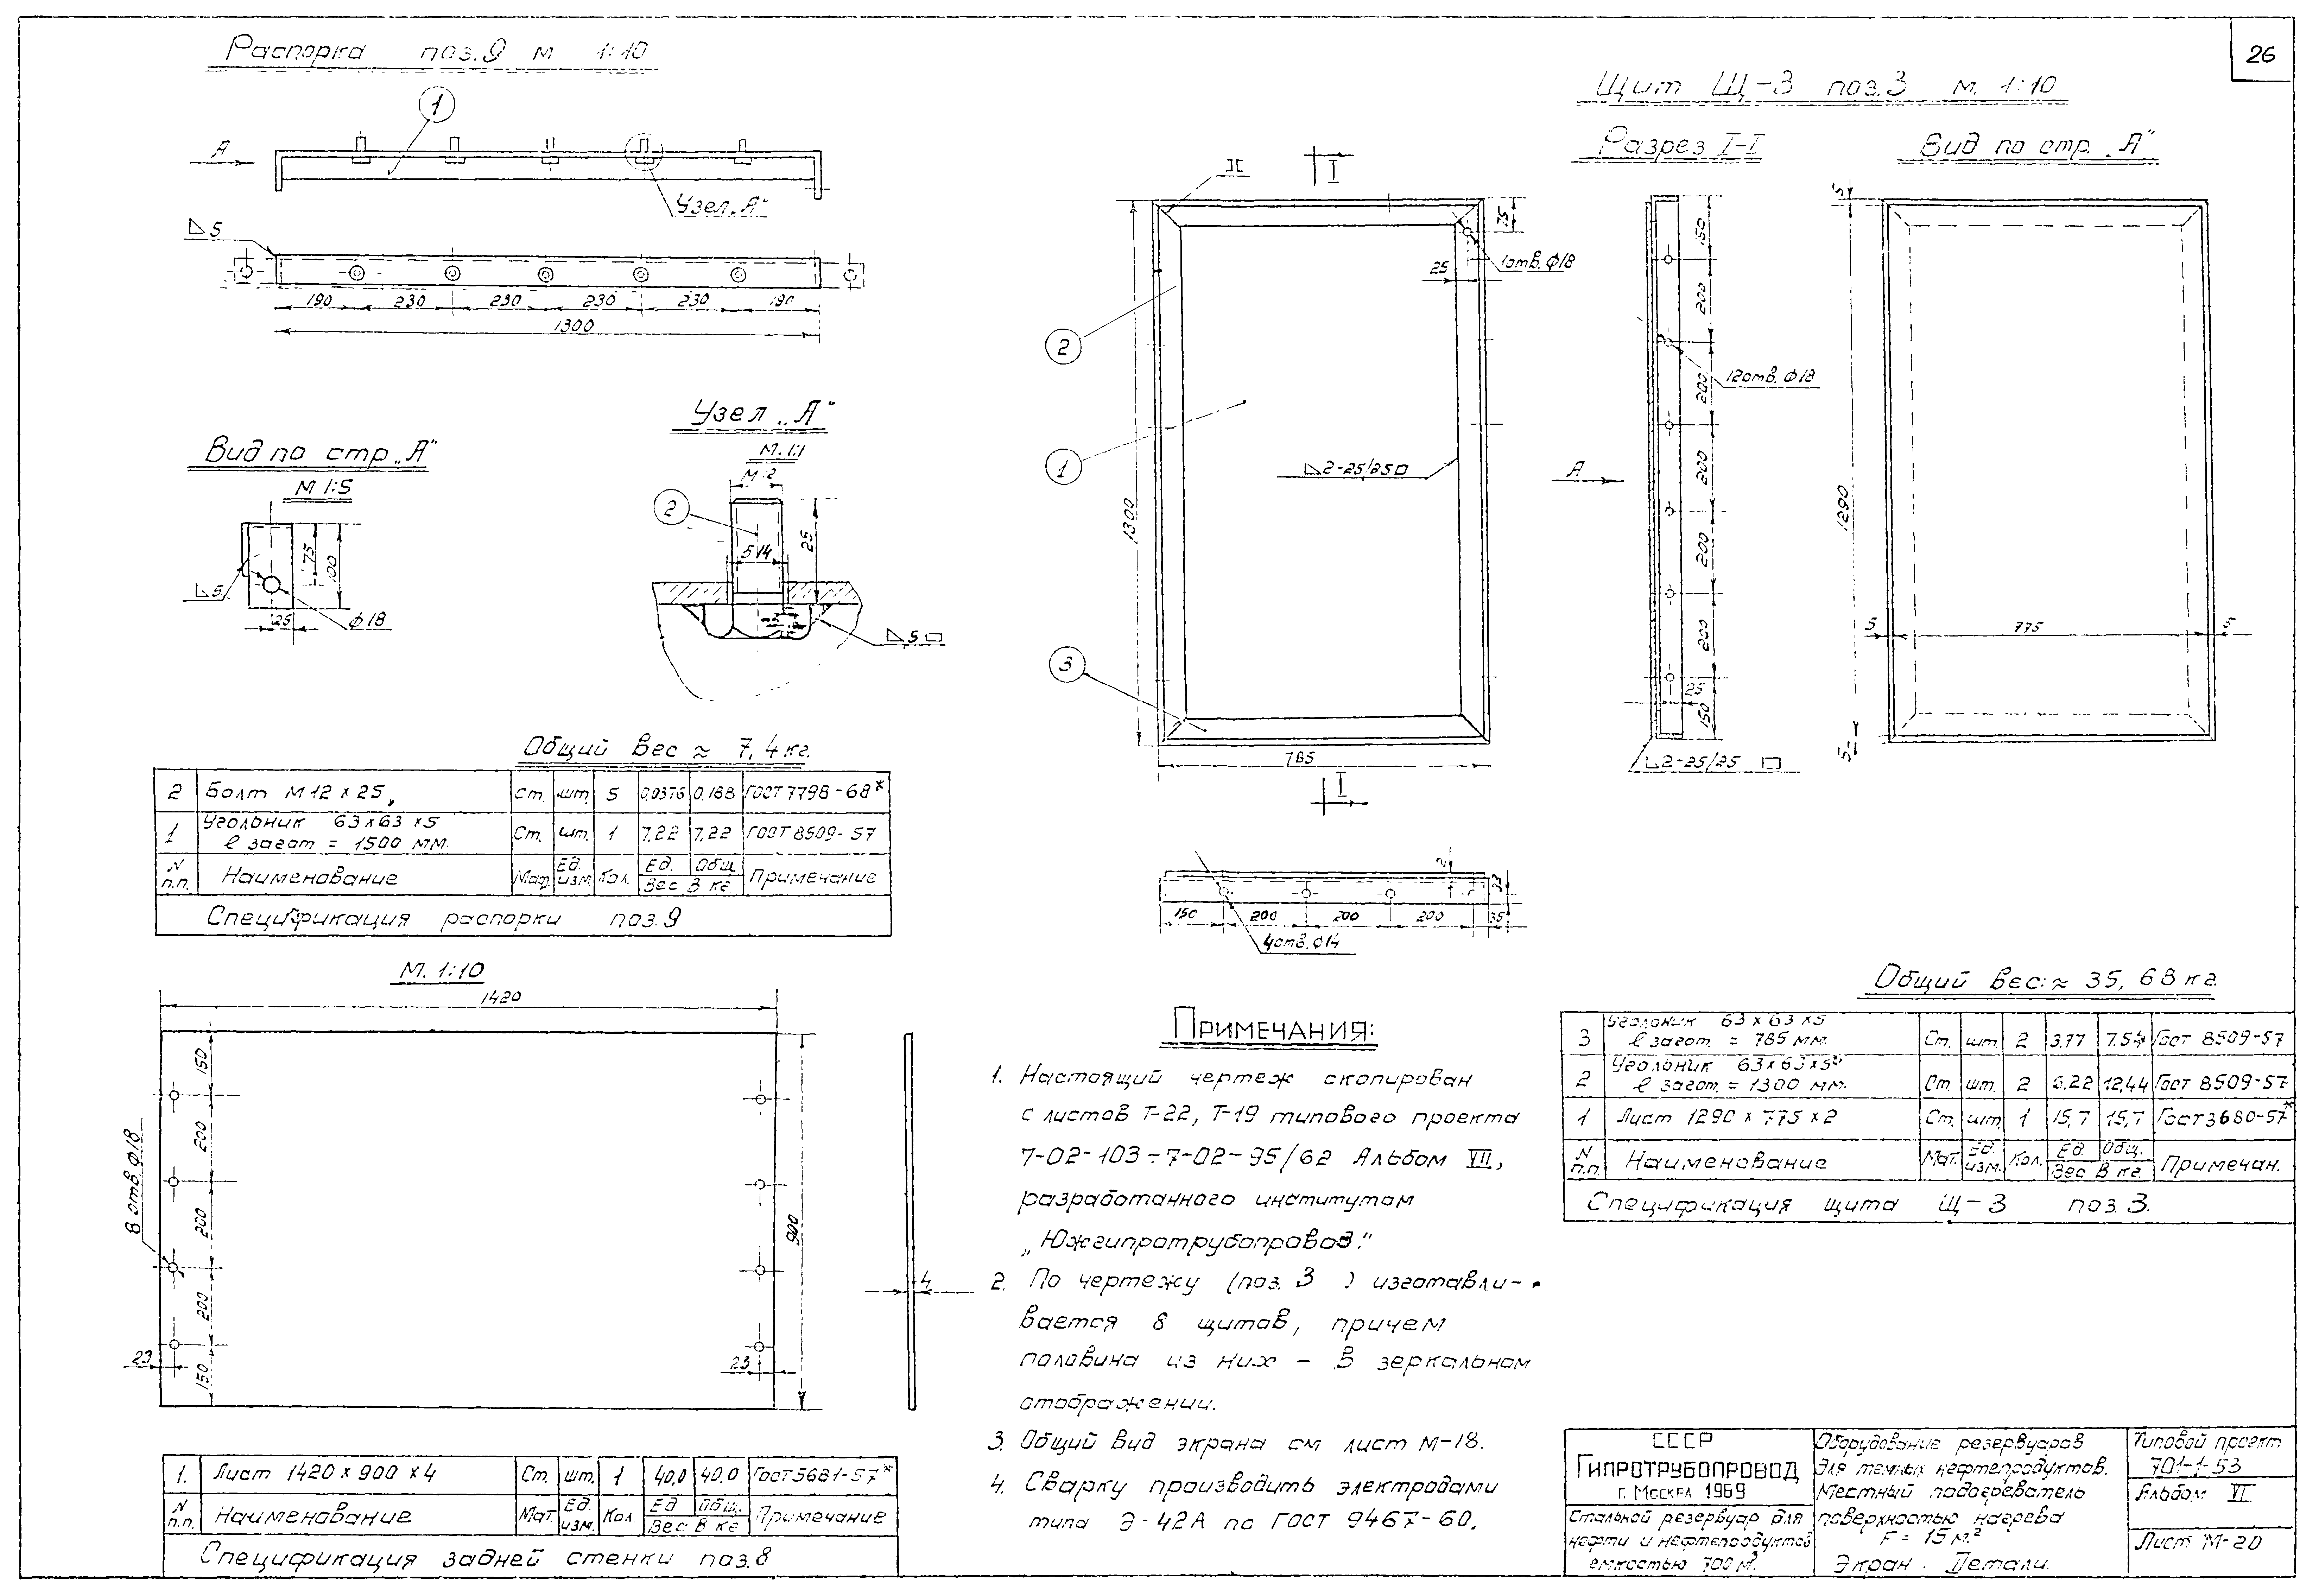 26
Распорка поз.9 м 1:10
1
А
Узел „А"
5
190 230 230 230 230 190
1300
Вид по стр. „А"
М 1:5
75
100
5
25
ф18
Узел „А"
М. 1:1
2
25
5
14
5
Общий вес ≈ 7,4 кг.
2 Болт М12 х 25, Ст. шт. 5 0,0376 0,188 ГОСТ 7798-68*
1 Угольник 63х63х5 Ст. шт. 1 7,22 7,22 ГОСТ 8509-57
ℓ загот = 1500 мм.
N п.п. Наименование Мат. Ед. изм. Кол. Ед. Общ. Вес в кг. Примечание
Спецификация распорки поз.9
М. 1:10
1420
150
200
200
200
150
8 отв. ф18
23
23
900
4
1. Лист 1420 х 900 х 4 Ст. шт. 1 40,0 40,0 Гост 5681-57*
N п.п. Наименование Мат. Ед. изм. Кол. Ед. Общ. Вес в кг Примечание
Спецификация задней стенки поз.8
Щит Щ-3 поз.3 м. 1:10
Разрез I-I
Вид по стр. „А"
I
75
25
1отв. ф18
2
1
3
1300
2-25/25
785
I
А
150
200
200
200
200
200
150
12отв. ф18
25
2-25/25
5
1290
5
775
5
5
2
33
150 200 200 200 35
4отв. ф14
Примечания:
1. Настоящий чертеж скопирован
с листов Т-22, Т-19 типового проекта
7-02-103÷7-02-95/62 Альбом VII,
разработанного институтом
„Южгипротрубопровод."
2. По чертежу (поз. 3 ) изготавли-
вается 8 щитов, причем
половина из них - в зеркальном
отображении.
3. Общий вид экрана см лист М-18.
4. Сварку производить электродами
типа Э-42А по ГОСТ 9467-60.
Общий вес: ≈ 35,68 кг.
3 Угольник 63х63х5 Ст. шт. 2 3,77 7,54 Гост 8509-57
ℓ загот. = 785 мм.
2 Угольник 63х63х5 Ст. шт. 2 6,22 12,44 Гост 8509-57
ℓ загот. = 1300 мм.
1 Лист 1290 х 775 х 2 Ст. шт 1 15,7 15,7 Гост 3680-57*
N п.п. Наименование Мат. Ед. изм. Кол. Ед. Общ. Вес в кг. Примечан.
Спецификация щита Щ-3 поз.3.
СССР
Гипротрубопровод
г. Москва 1969
Стальной резервуар для
нефти и нефтепродуктов
емкостью 700 м³.
Оборудование резервуаров
для темных нефтепродуктов.
Местный подогреватель
поверхностью нагрева
F = 15 м.²
Экран. Детали.
Типовой проект
701-1-53
Альбом VI
Лист М-20